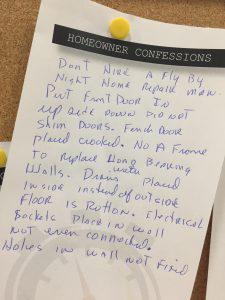 HOMEOWNER CONFESSIONS
Don't Hire A Fly By
Night Home Repair man.
Put Front Door In
up side down Did not
Shim Doors. Fench Door
placed crooked. No A Frame
To Replace Long Bearing
Walls. Drains with placed
inside instead of outside
Floor is Rotton. Electrical
Sockets Place in wall
not even connected.
Holes in wall not Fixed